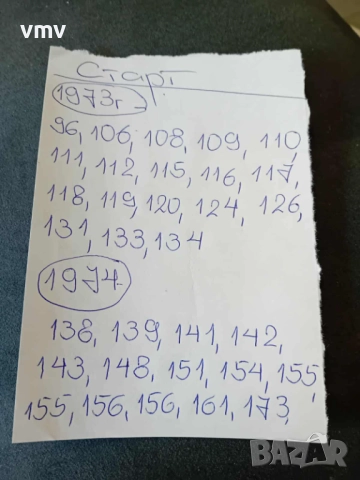 vmv
Старт
1973г.
96, 106, 108, 109, 110,
111, 112, 115, 116, 117,
118, 119, 120, 124, 126,
131, 133, 134
1974
138, 139, 141, 142,
143, 148, 151, 154, 155,
155, 156, 156, 161, 173,
BAZAR